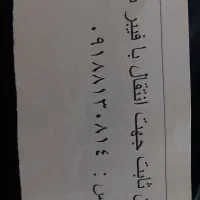 ثابت جهت انتقال با فیبر
س : ۰۹۱۸۸۱۳۰۸۱٤